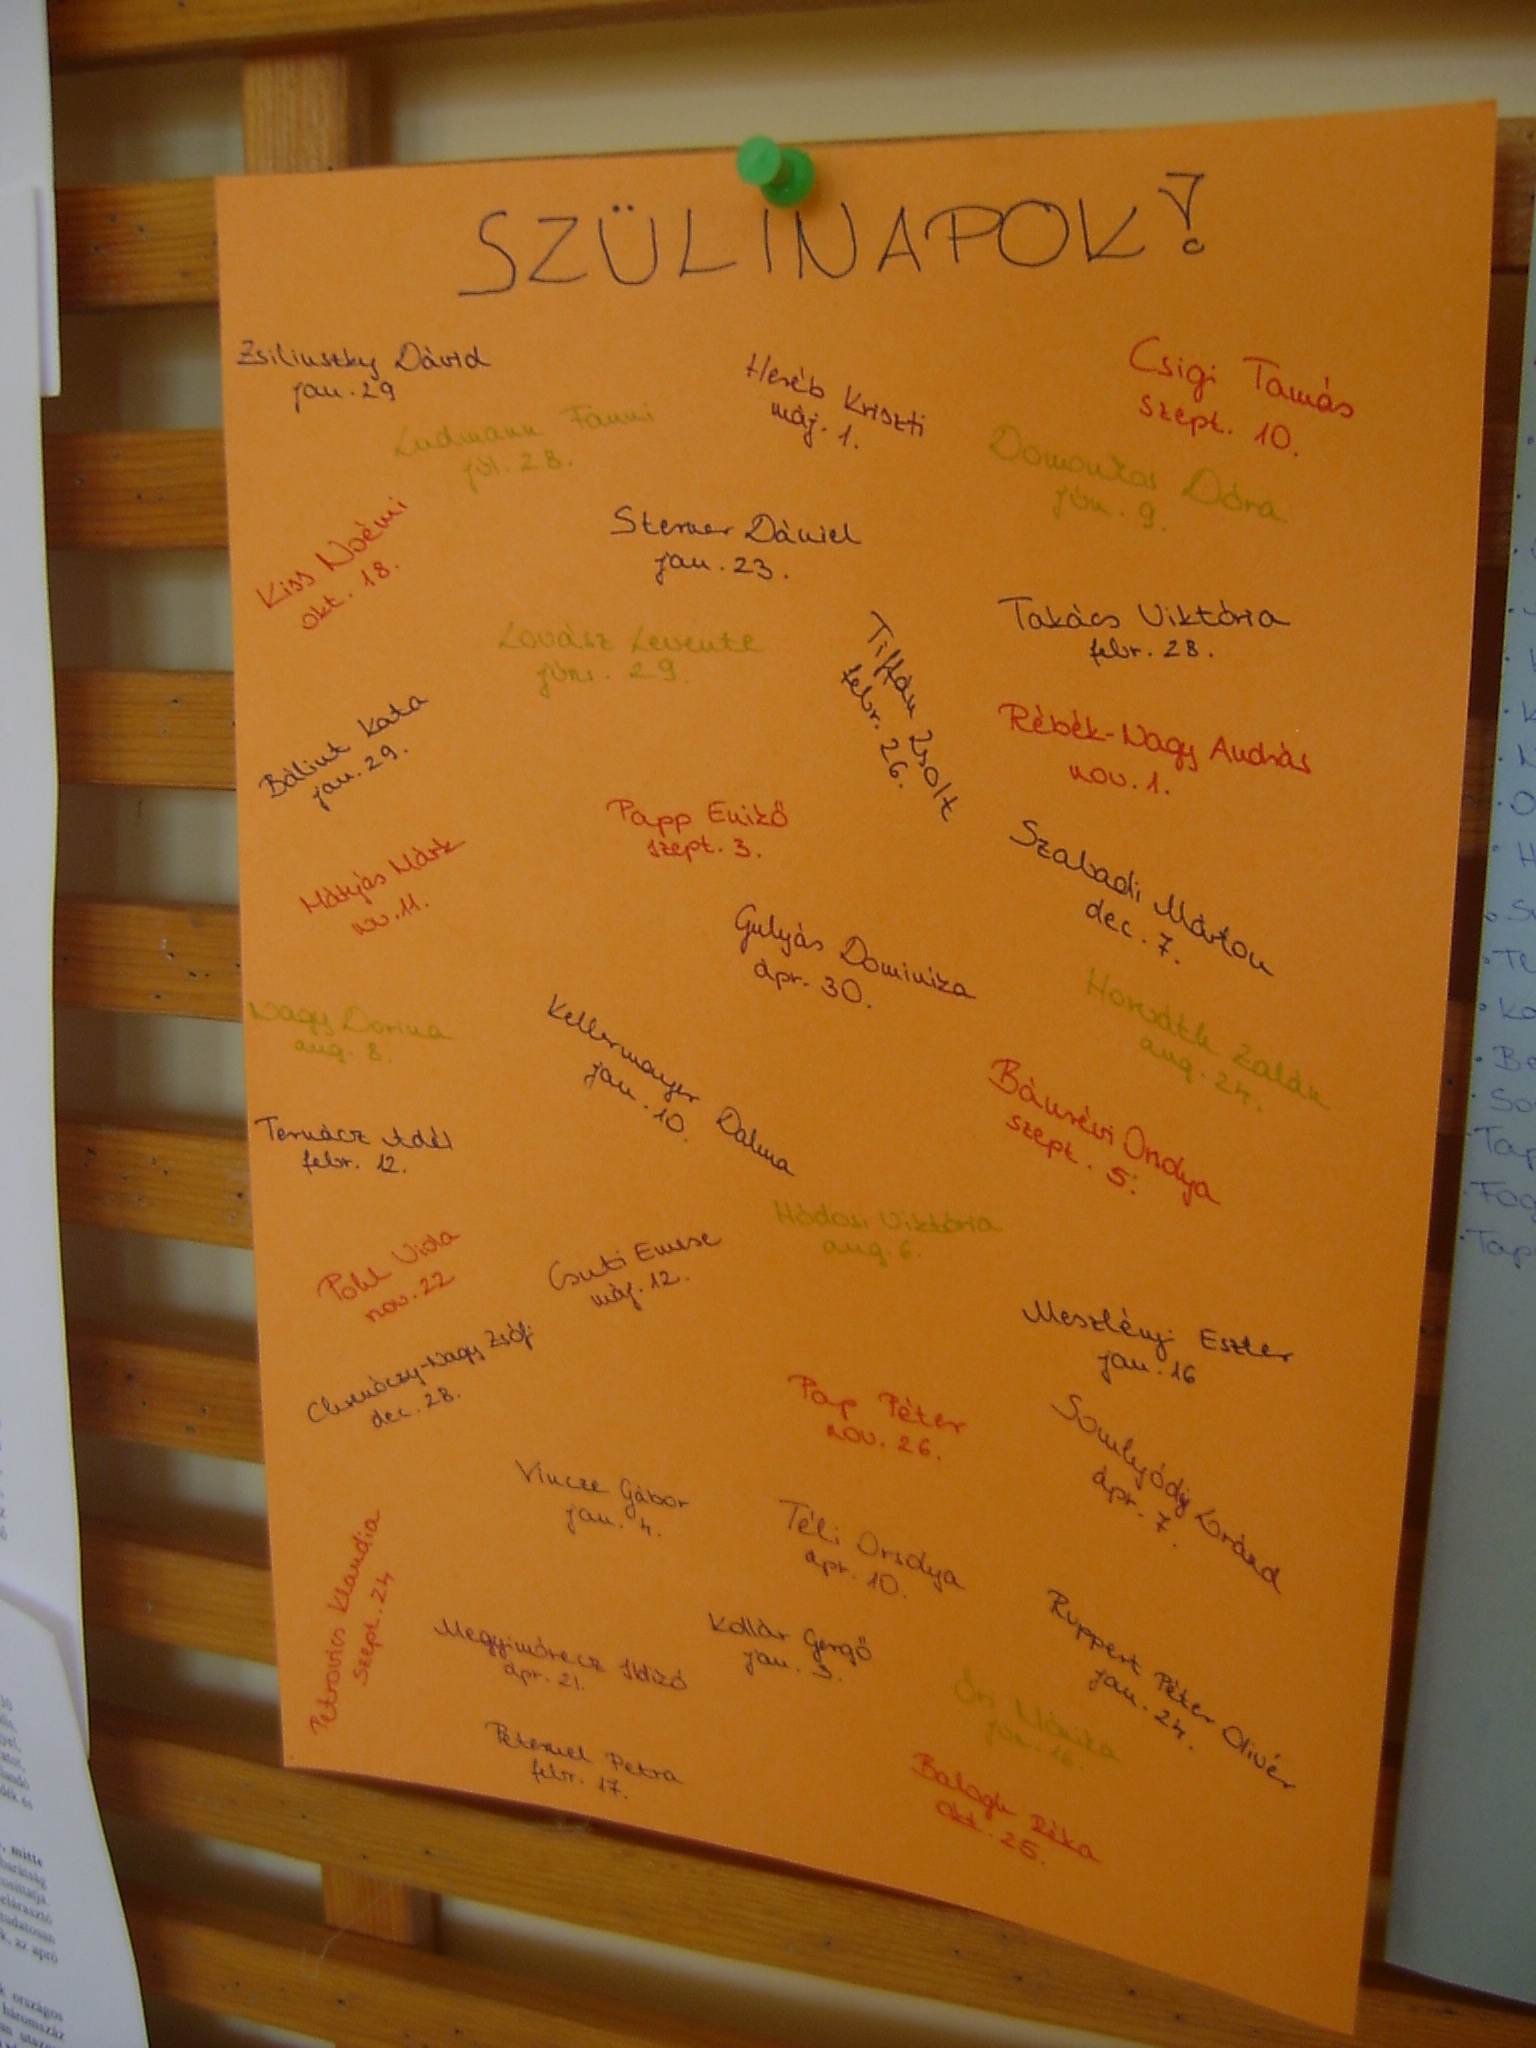 SZÜLINAPOK!
Zsilinszky Dávid
jan. 29
Ludmann Fanni
júl. 28.
Heréb Kriszti
máj. 1.
Csigi Tamás
szept. 10.
Domonkos Dóra
jún. 9.
Kiss Noémi
okt. 18.
Sterner Dániel
jan. 23.
Lovász Levente
jún. 29.
Takács Viktória
febr. 28.
Tiffán Zsolt
febr. 26.
Bálint Kata
jan. 29.
Rébék-Nagy András
nov. 1.
Papp Enikő
szept. 3.
Mátyás Márk
nov. 11.
Szabadi Márton
dec. 7.
Gulyás Dominika
ápr. 30.
Nagy Dorina
aug. 8.
Kellermayer Dalma
jan. 10.
Horváth Zalán
aug. 24.
Bánrévi Orsolya
szept. 5.
Ternácz Adél
febr. 12.
Hódosi Viktória
aug. 6.
Pohl Viola
nov. 22
Csutó Emese
máj. 12.
Meszlényi Eszter
jan. 16
Chernóczy-Nagy Zsófi
dec. 28.
Pap Péter
nov. 26.
Somlyódy Loránd
ápr. 7.
Vincze Gábor
jan. 4.
Téli Orsolya
ápr. 10.
Petrovics Klaudia
szept. 24
Megyimórecz Ildikó
ápr. 21.
Kollár Gergő
jan. 3.
Ruppert Péter Olivér
jan. 24.
Őri Mónika
jún. 16.
Peternel Petra
febr. 17.
Balogh Réka
okt. 25.